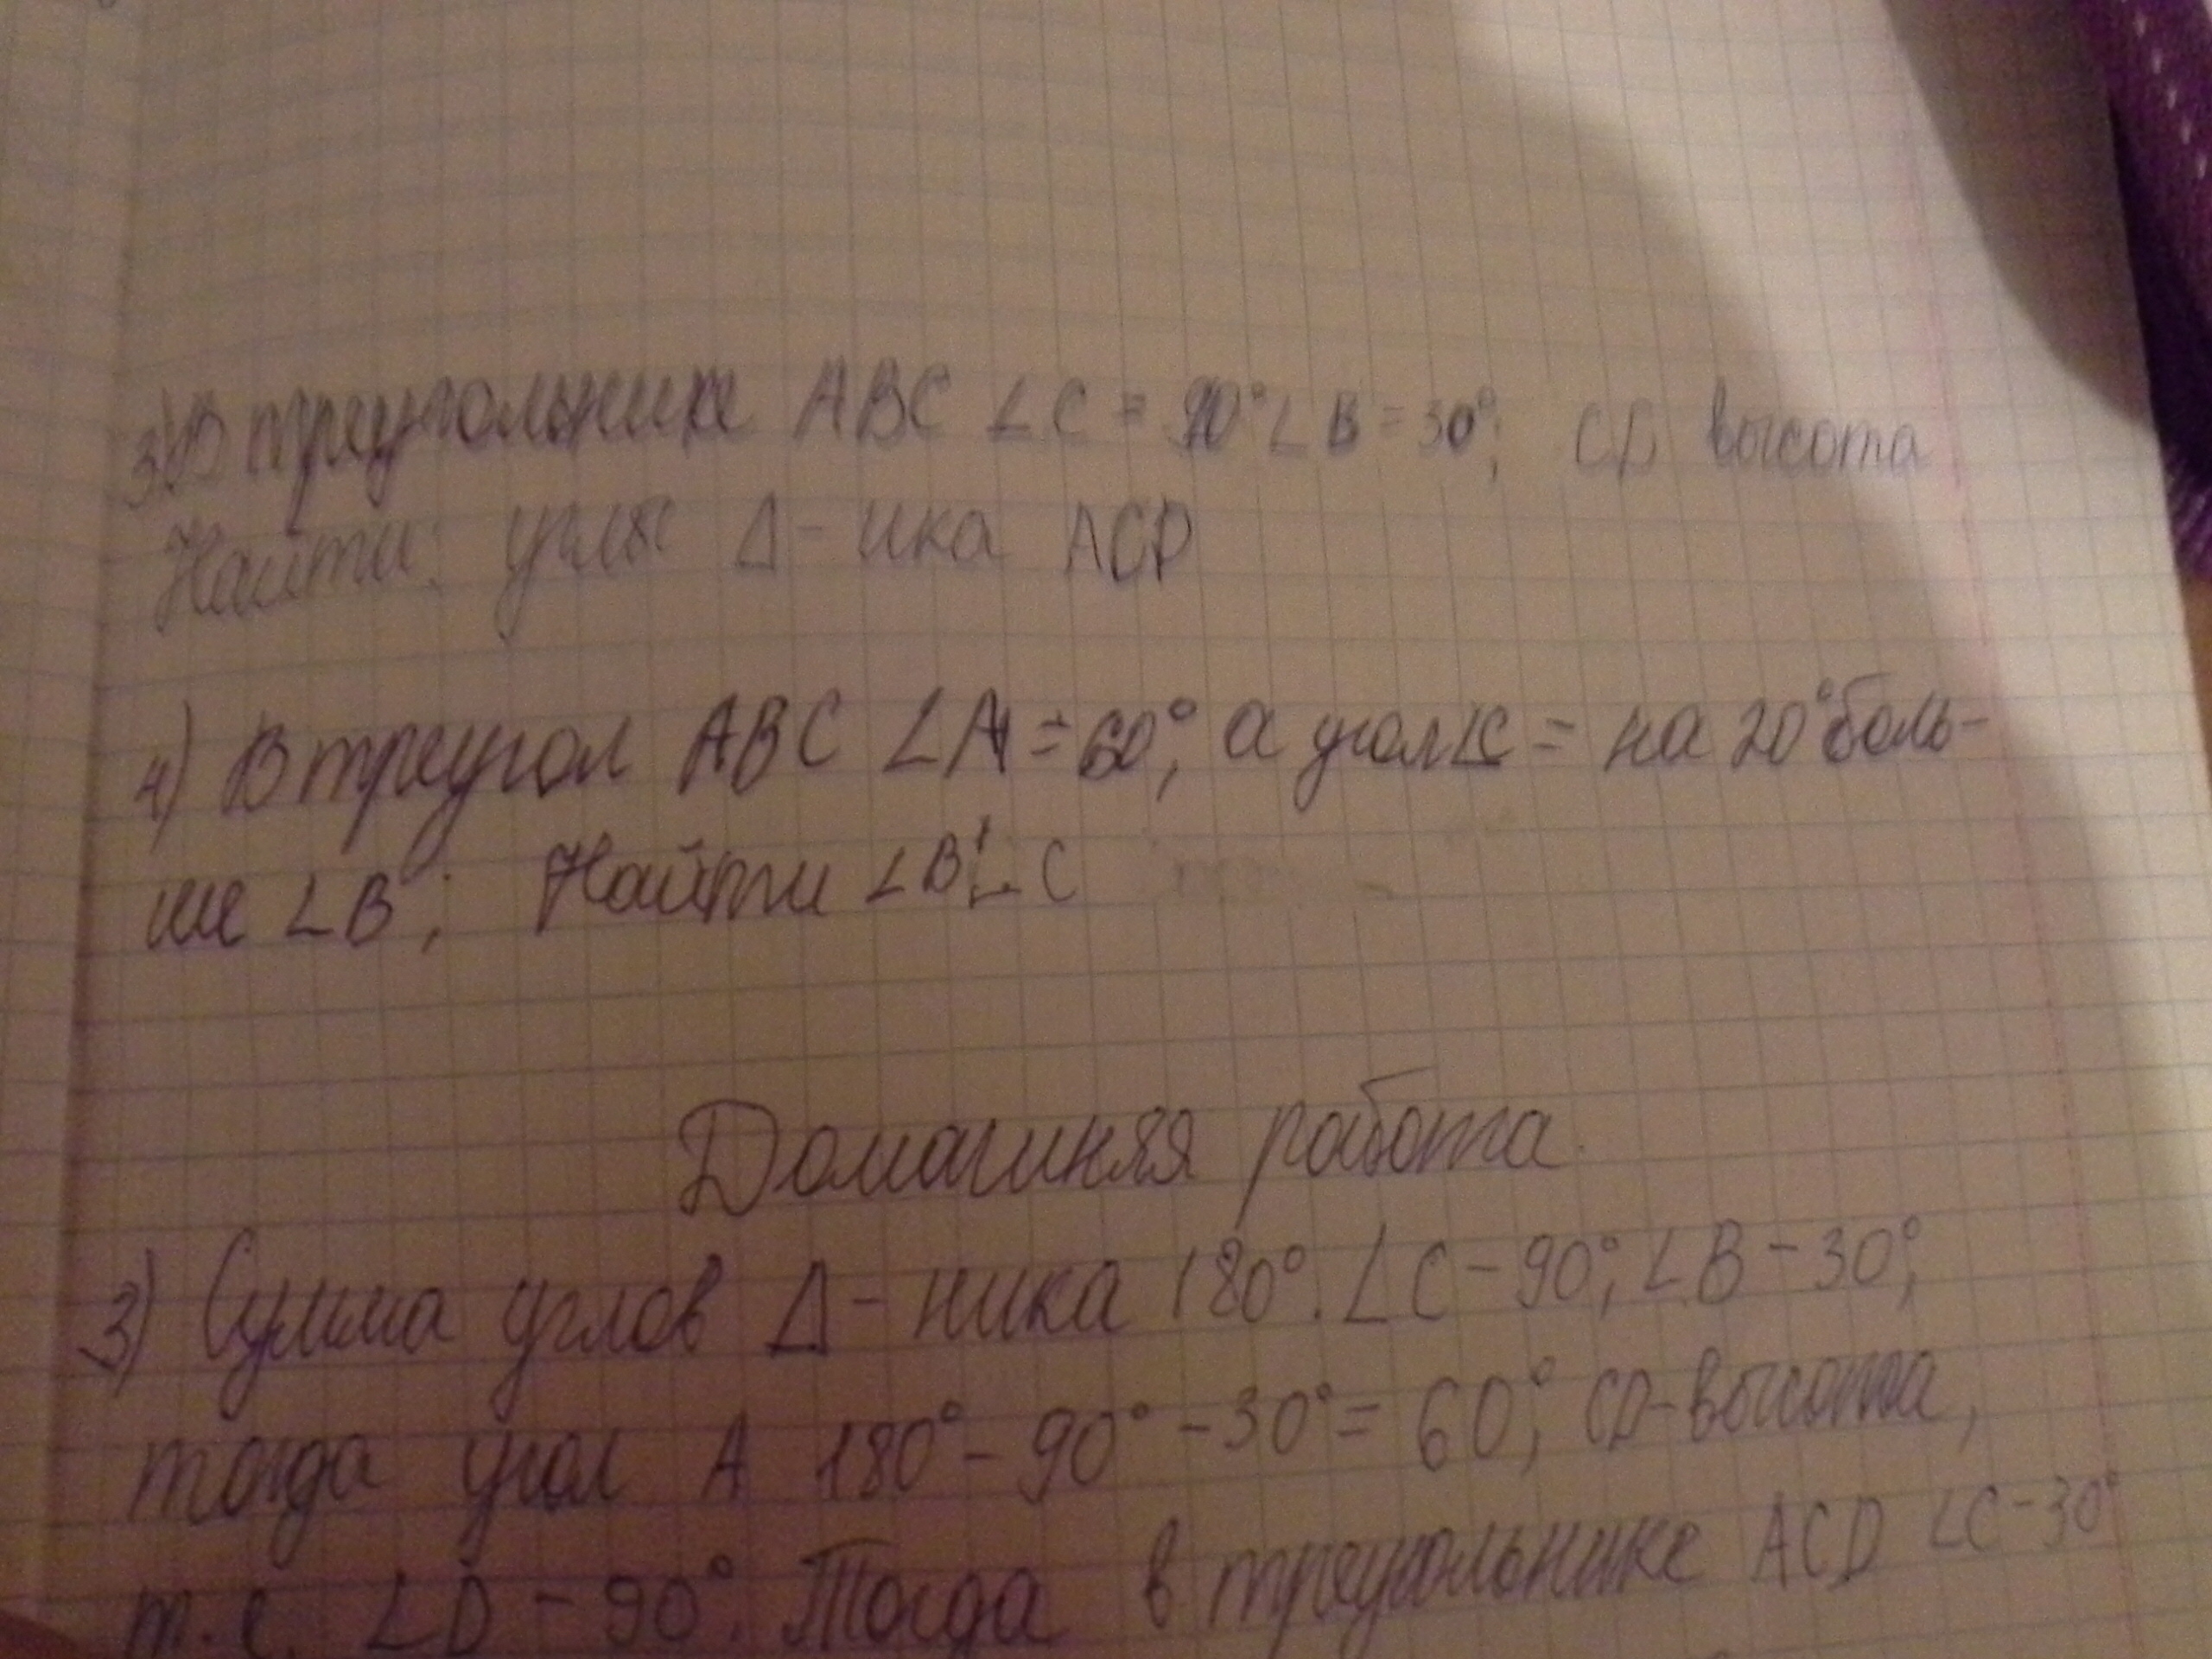 3) В треугольнике ABC ∠C = 90° ∠B = 30°; CD высота
Найти: углы Δ-ика ACD
4) В треугол ABC ∠A = 60°, а угол ∠C = на 20° боль-
ше ∠B; Найти ∠B; ∠C
Домашняя работа.
3) Сумма углов Δ-ника 180°. ∠C - 90°; ∠B - 30°;
тогда угол A 180° - 90° - 30° = 60°; CD-высота,
т.е. ∠D - 90°. Тогда в треугольнике ACD ∠C - 30°